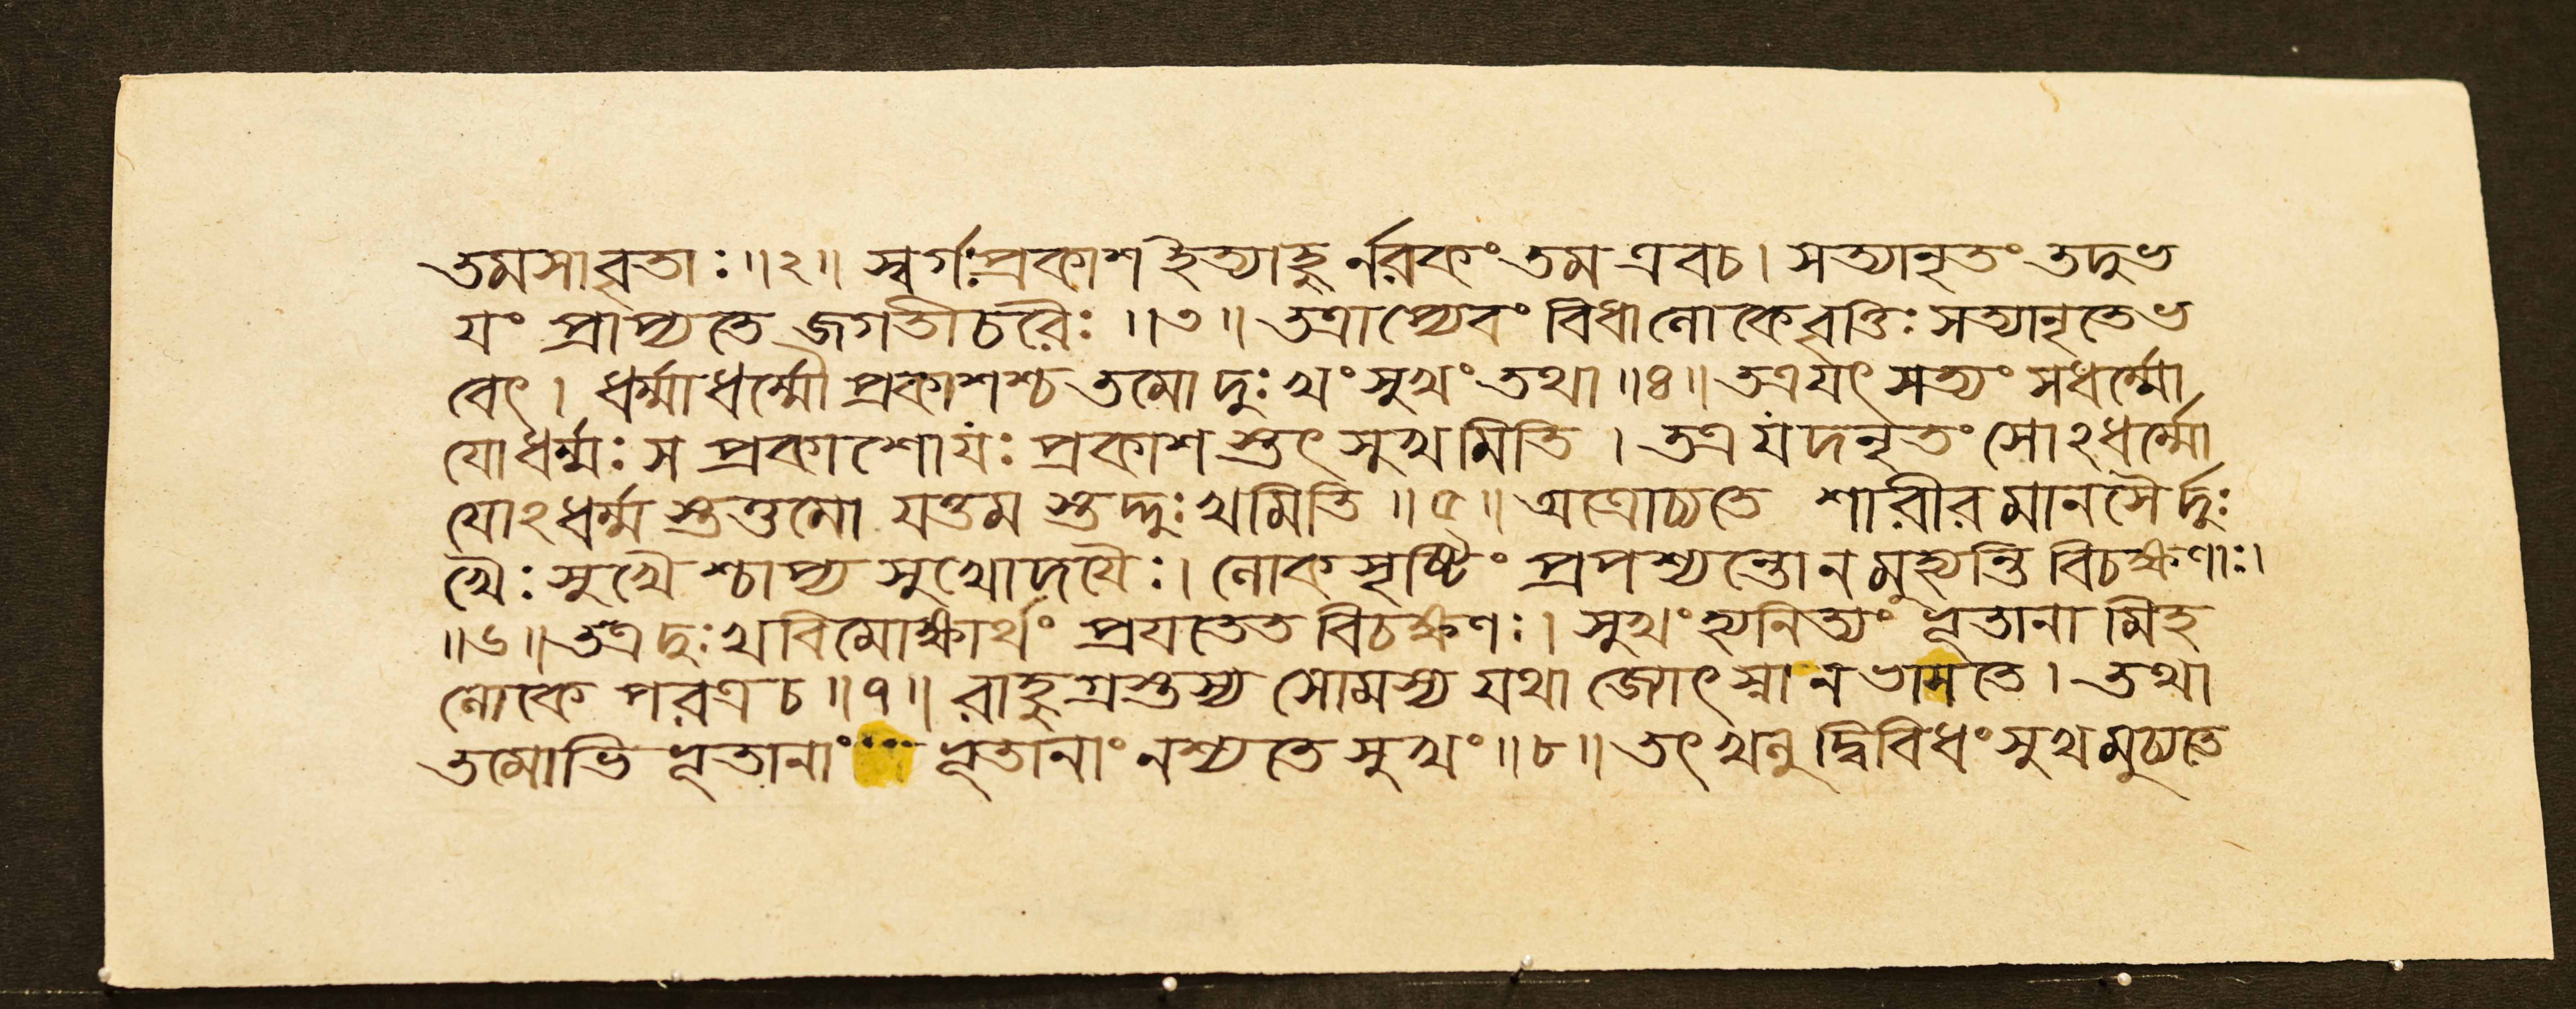 তমসাবৃতাঃ ॥২॥ স্বর্গঃপ্রকাশ ইত্যাহু র্নরকং তম এবচ। সত্যানৃতং তদুভ
যং প্রাপ্যতে জগতীচরৈঃ ॥৩॥ তত্রাপ্যেবং বিধালোকেবৃত্তিঃ সত্যানৃতেভ
বেৎ। ধর্ম্মাধর্ম্মৌ প্রকাশশ্চ তমো দুঃখং সুখং তথা ॥৪॥ তত্রযৎ সত্যং সধর্ম্মো
যোধর্ম্মঃ স প্রকাশোযঃ প্রকাশ স্তৎ সুখমিতি। তত্র যদনৃতং সোঽধর্ম্মো
যোঽধর্ম্ম স্তত্তমো যত্তম স্তদ্দুঃখমিতি ॥৫॥ অত্রোচ্যতে শারীর মানসৈর্দুঃ
খৈঃ সুখৈ শ্চাপ্য সুখোদযৈঃ। লোক সৃষ্টিং প্রপশ্যন্তো ন মুহ্যন্তি বিচক্ষণাঃ।
॥৬॥ তত্র দুঃখবিমোক্ষার্থং প্রযতেত বিচক্ষণঃ। সুখং হ্যনিত্যং ভূতানা মিহ
লোকে পরত্র চ ॥৭॥ রাহু গ্রস্তস্য সোমস্য যথা জোৎস্না ন ভাসতে। তথা
তমোভি ভূতানাং ভূতানাং নশ্যতে সুখং ॥৮॥ তৎ খলু দ্বিবিধং সুখমুচ্যতে